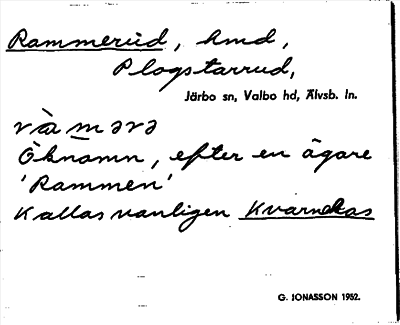 Rammerud, hmd,
Plogstarrud,
Järbo sn, Valbo hd, Älvsb. ln.
ràmərə
Öknamn, efter en ägare
'Rammen'
Kallas vanligen Kvarnekas
G. JONASSON 1952.